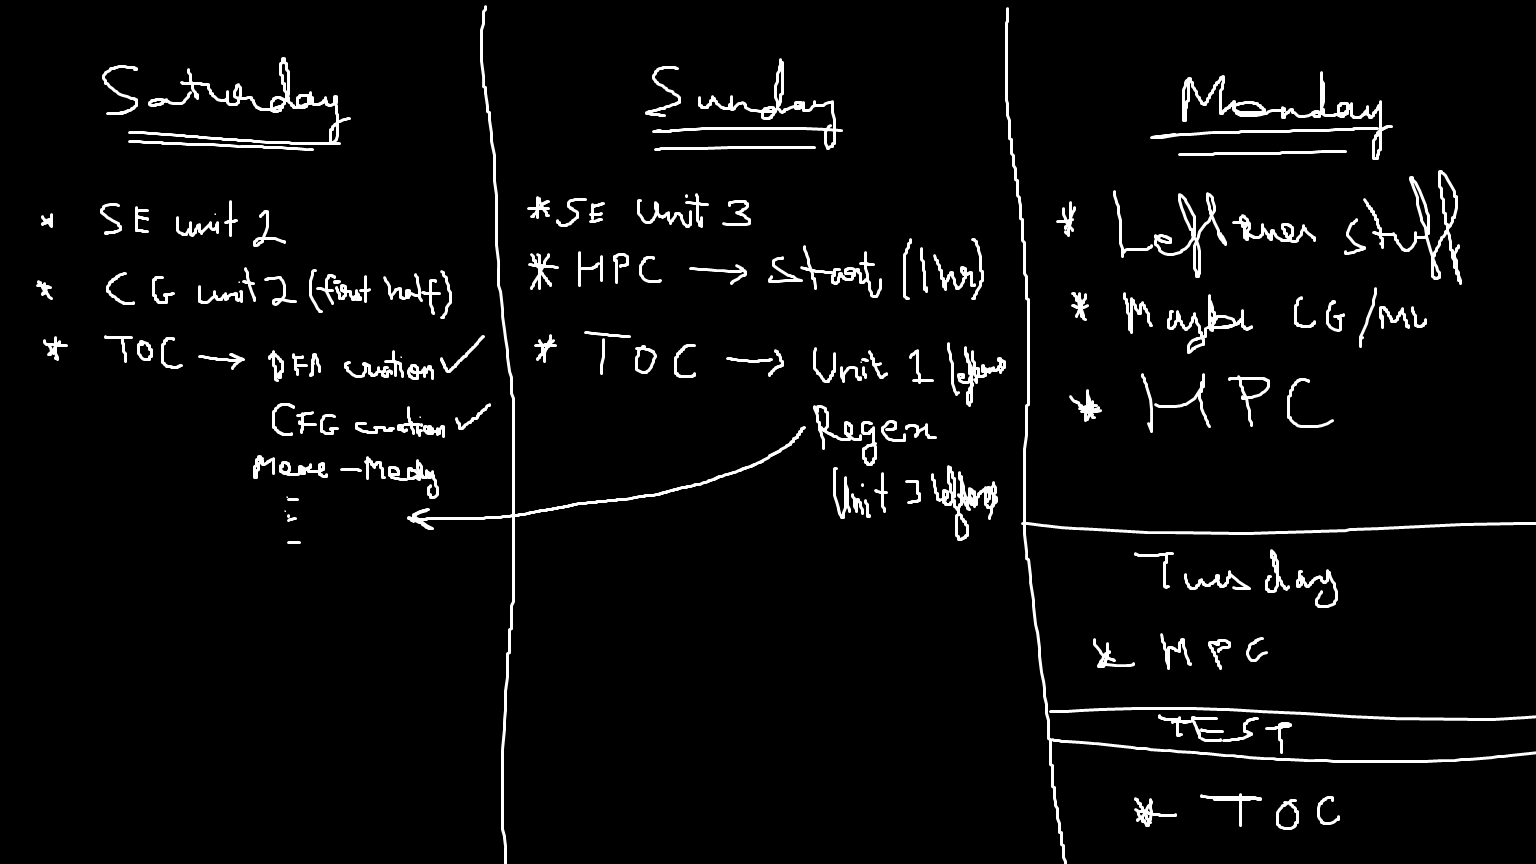 Saturday
* SE unit 2
* CG unit 2 (first half)
* TOC → DFA creation ✓
CFG creation ✓
Moore - Mealy
Sunday
* SE Unit 3
* HPC → Start (1 hr)
* TOC → Unit 1 leftovers
Regex
Unit 3 leftovers
Monday
* Leftover stuff
* Maybe CG/ML
* HPC
Tuesday
* HPC
TEST
* TOC